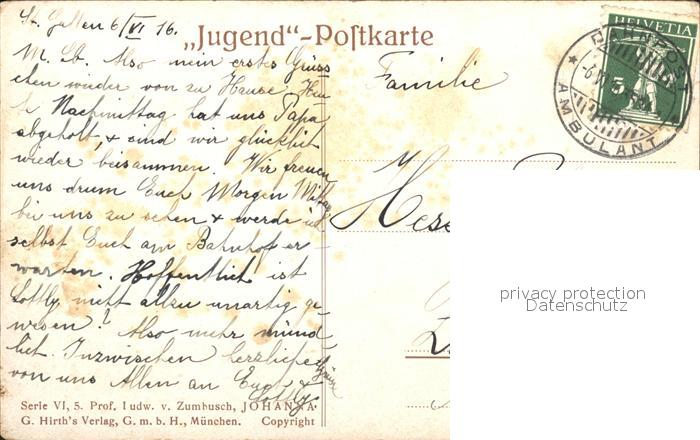 St. Gallen 6/VI 16.
„Jugend“-Postkarte
M. Lb. Also mein erstes Grüss
chen wieder von zu Hause. Heu
te Nachmittag hat uns Papa
abgeholt, & sind wir glücklich
wieder beisammen. Wir freuen
uns drum Euch Morgen Mittag
bei uns zu sehen & werde ich
selbst Euch am Bahnhof er-
warten. Hoffentlich ist
nicht allzu unartig ge
wesen? Also mehr münd
lich. Inzwischen herzliche Grüsse
von uns Allen an Euch
Familie
HELVETIA
5
BAHNPOST
AMBULANT
privacy protection
Datenschutz
Serie VI, 5. Prof. Ludw. v. Zumbusch, JOHANNA
G. Hirth's Verlag, G. m. b. H., München. Copyright